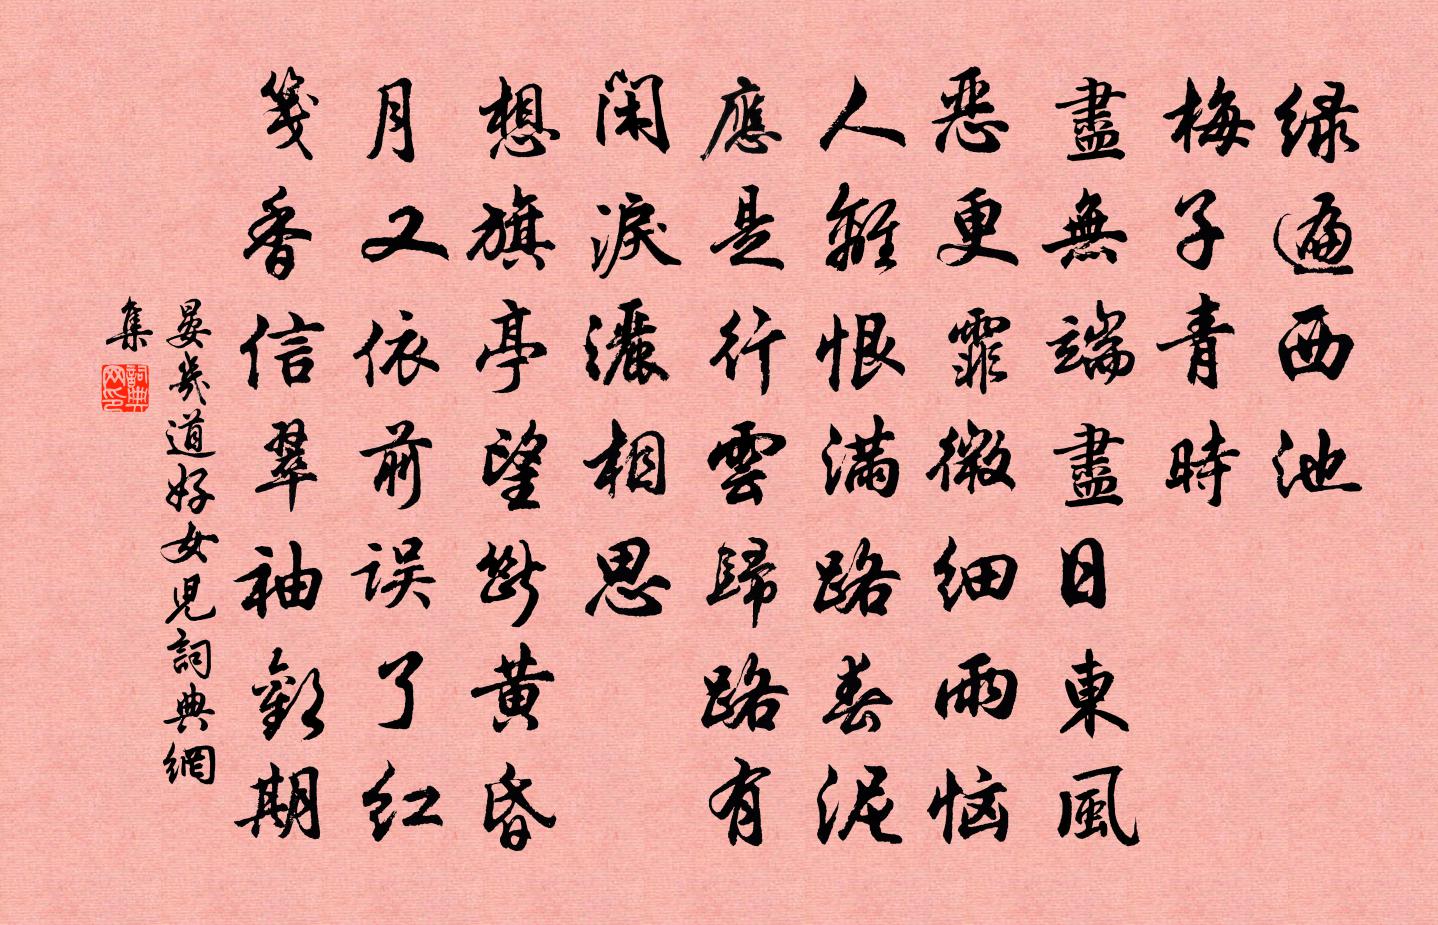 綠遍西池
梅子青時
盡無端盡日東風
惡更霏微細雨惱
人離恨滿路春泥
應是行雲歸路有
閑淚灑相思
想旗亭望斷黃昏
月又依前誤了紅
箋香信翠袖歡期
晏幾道好女兒詞典網
集
詞典
网印